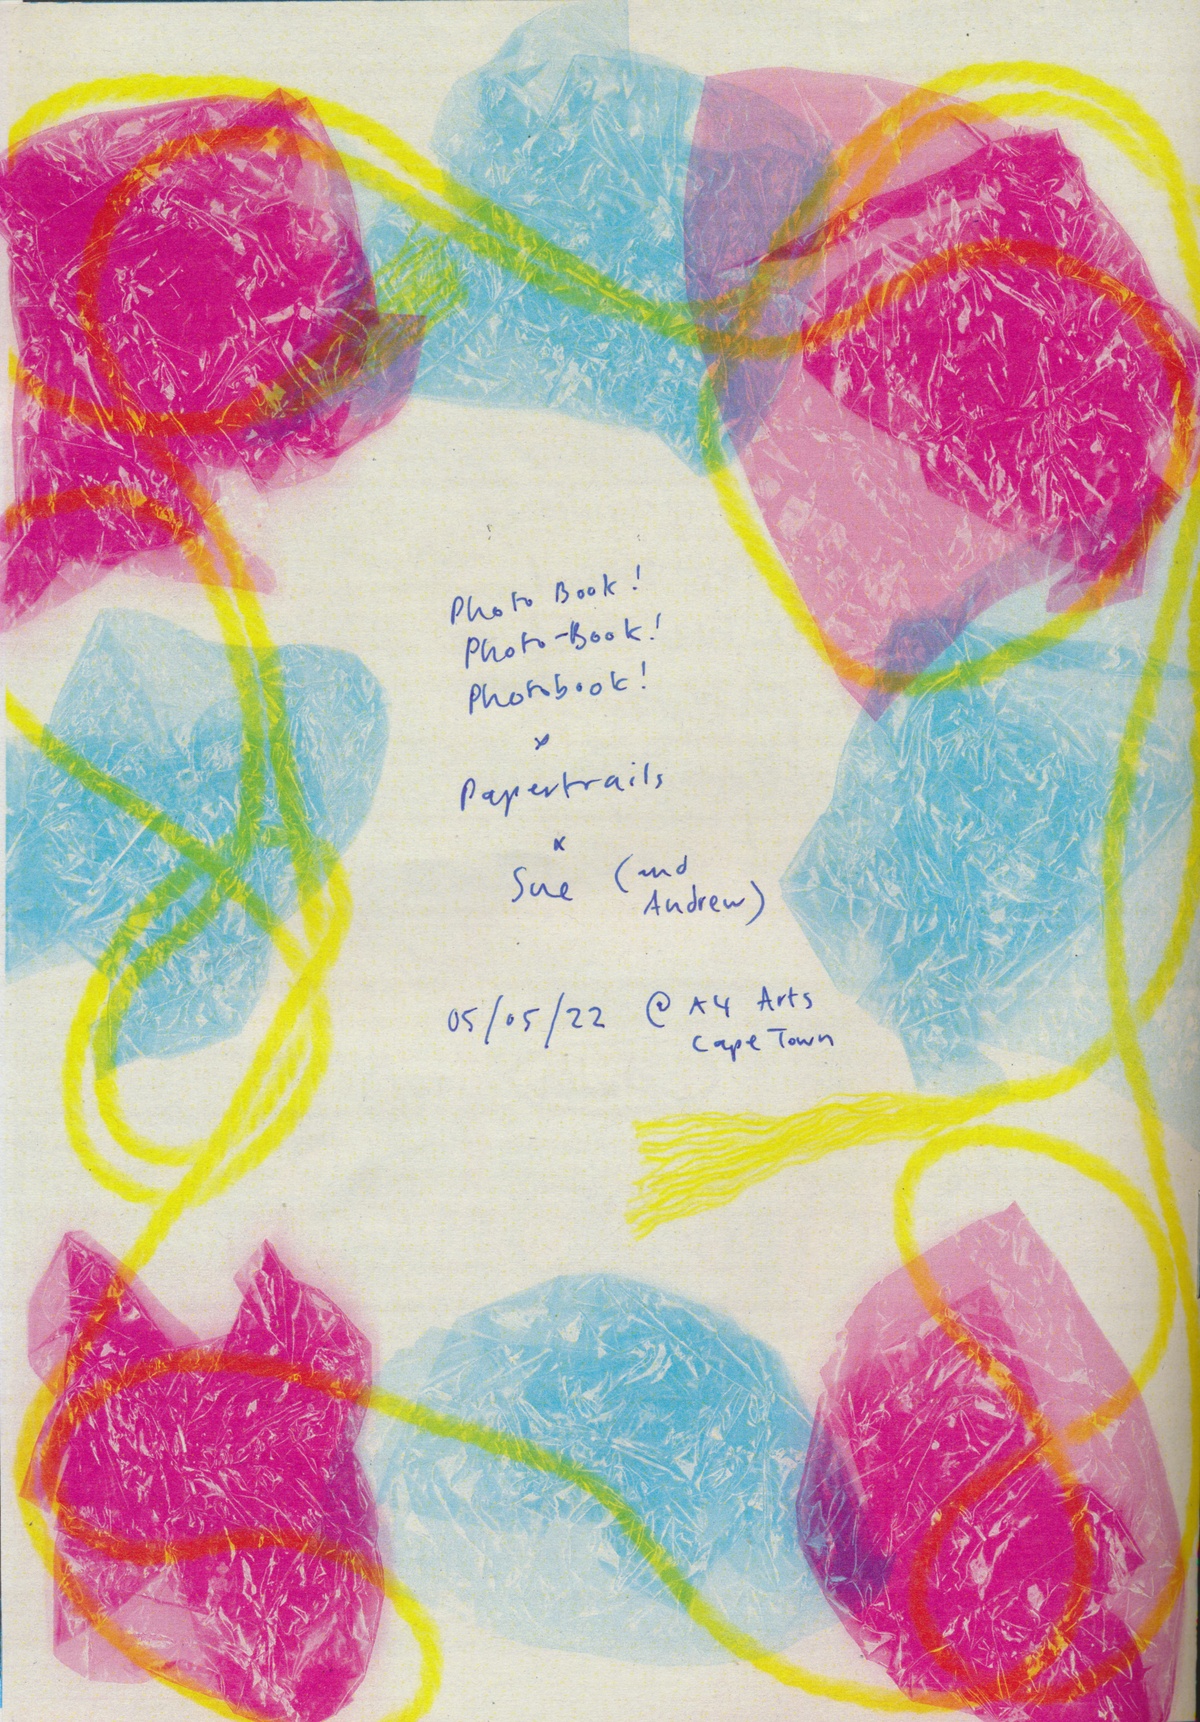 Photo Book!
Photo-Book!
Photobook!
x
Papertrails
x
Sue (and
Andrew)
05/05/22 @ A4 Arts
Cape Town